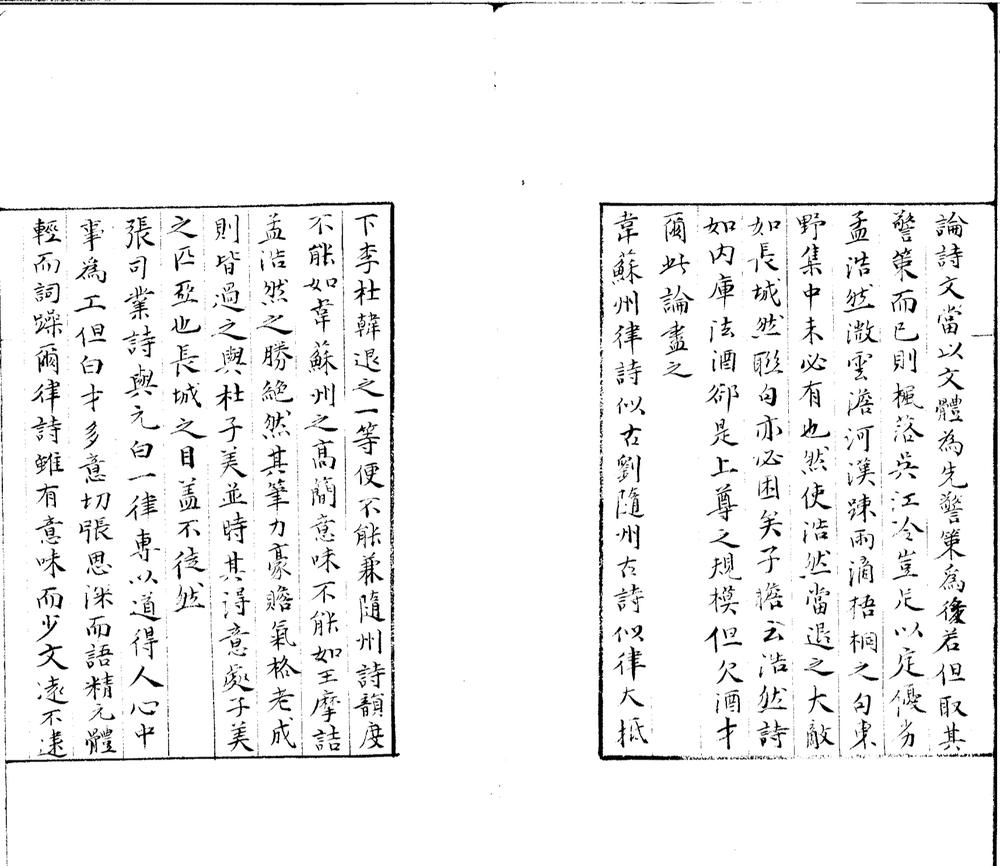 論詩文當以文體為先警策為後若但取其
警策而已則楓落吳江冷豈足以定優劣
孟浩然微雲澹河漢踈雨滴梧桐之句東
野集中未必有也然使浩然當退之大敵
如長城然聯句亦必困矣子瞻云浩然詩
如内庫法酒郤是上尊之規模但欠酒才
爾此論盡之
韋蘇州律詩似古劉隨州古詩似律大抵
下李杜韓退之一等便不能兼隨州詩韻度
不能如韋蘇州之高簡意味不能如王摩詰
孟浩然之勝絶然其筆力豪贍氣格老成
則皆過之與杜子美並時其得意處子美
之匹亞也長城之目盖不徒然
張司業詩與元白一律專以道得人心中
事為工但白才多意切張思深而語精元體
輕而詞躁爾律詩雖有意味而少文遠不逮